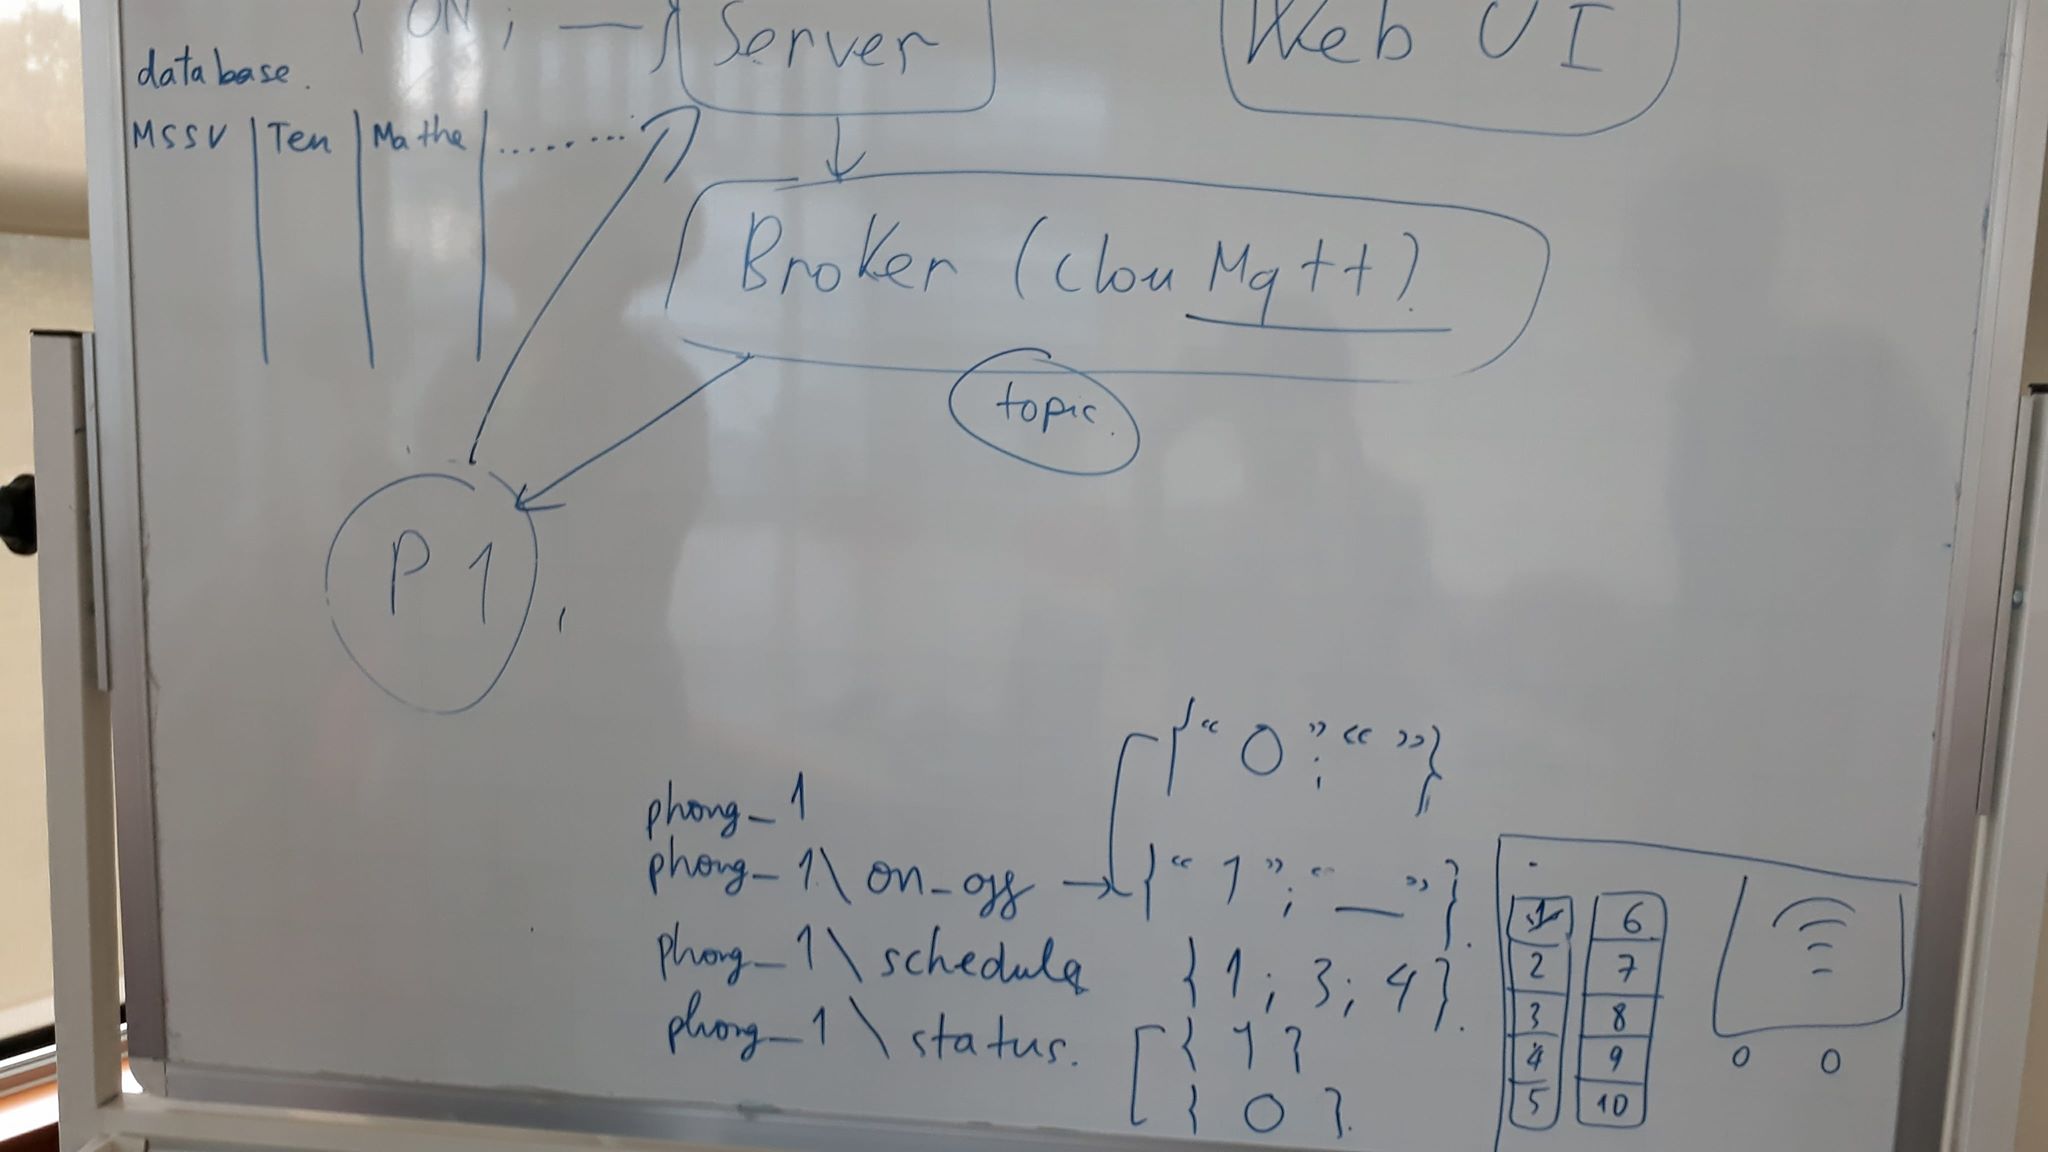 { ON ; — }
Server
Web UI
database.
MSSV | Ten | Mathe | .........
Broker (clou Mqtt).
topic.
P1
{" 0 " ; " "}
phong_1
phong_1 \ on_off → {" 1 " ; " — "}.
phong_1 \ schedule { 1 ; 3 ; 4 }.
phong_1 \ status. { 1 }
{ 0 }.
1 6
2 7
3 8
4 9
5 10